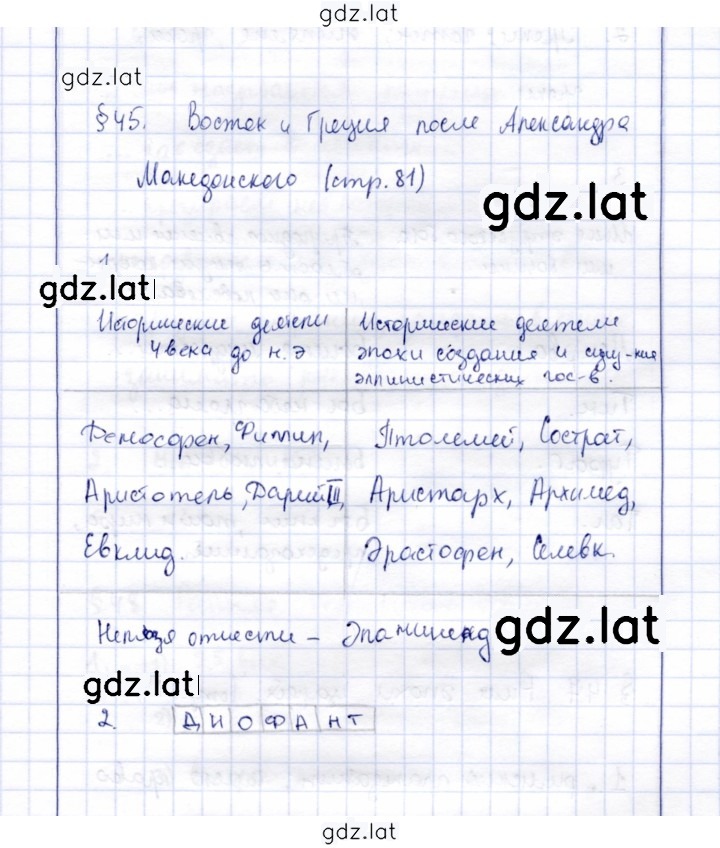 gdz.lat
gdz.lat
§45. Восток и Греция после Александра
Македонского (стр. 81)
gdz.lat
1
gdz.lat
Исторические деятели
4 века до н.э
Исторические деятели
эпохи создания и сущ-ния
эллинистических гос-в.
Демосфен, Филипп,
Аристотель, Дарий III,
Евклид.
Птолемей, Сострат,
Аристарх, Архимед,
Эрастофен, Селевк.
Нельзя отнести – Эпаминонд
gdz.lat
gdz.lat
2. ДИОФАНТ
gdz.lat